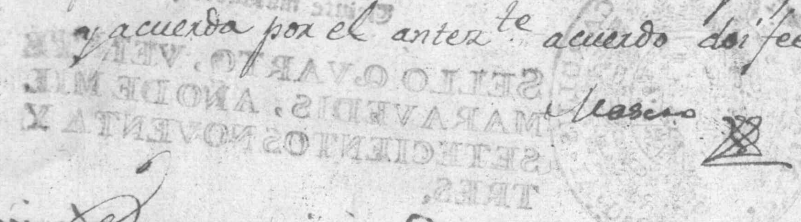 y acuerda por el antezte acuerdo doi fee
SELLO QVARTO, VEINTE
MARAVEDIS, AÑO DE MIL
SETECIENTOS NOVENTA Y
TRES.